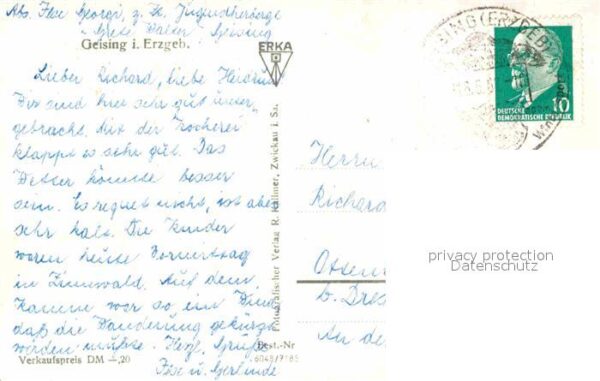 Abs. Ilse Georgi, z. Zt. Jugendherberge
"Grete Walter" Geising
Geising i. Erzgeb.
ERKA
Lieber Richard, liebe Heidrun
Wir sind hier sehr gut unter-
gebracht. Mit der Kocherei
klappt es sehr gut. Das
Wetter könnte besser
sein. Es regnet nicht, ist aber
sehr kalt. Die Kinder
waren heute Vormittag
in Zinnwald. Auf dem
Kamme war so ein Wind
daß die Wanderung gekürzt
werden mußte. Herzl. Grüße
Ilse u. Gerlinde
Verkaufspreis DM –,20
Best.-Nr
6048/7185
Fotografischer Verlag R. Kallmer, Zwickau i. Sa.
GEISING (ERZGEB)
DEUTSCHE
DEMOKRATISCHE REPUBLIK
10
Herrn
Richard
Otten
b. Dres
An de
privacy protection
Datenschutz